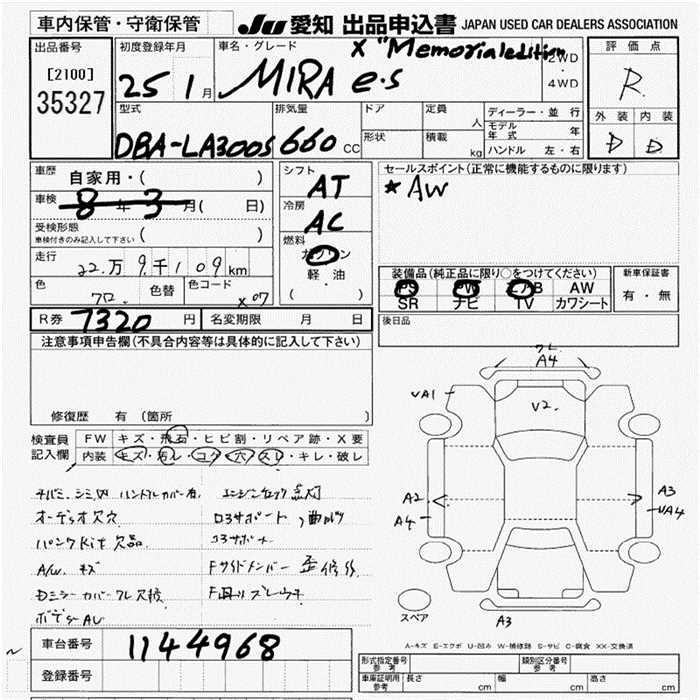 車内保管・守衛保管 JU 愛知 出品申込書 JAPAN USED CAR DEALERS ASSOCIATION
出品番号
[2100]
35327
初度登録年月
25 1月
車名・グレード
X "Memorialedition
MIRA e.s
2WD
・
4WD
評価点
R
外装 内装
D D
型式
DBA-LA300S
排気量
660 CC
ドア
形状
定員 人
積載 kg
ディーラー・並行
モデル年式 年
ハンドル 左・右
車歴
自家用・( )
車検
8年3月( 日)
受検形態
車検付きのみ記入して下さい ( )
走行
22万9千109km
色
クロ.
色替
色コード
X07
シフト
AT
冷房
AC
燃料
ガソリン
軽・油
( )
セールスポイント(正常に機能するものに限ります)
★AW
装備品(純正品に限り○をつけてください)
PS PW エアB AW
SR ナビ TV カワシート
新車保証書
有・無
後日品
R券 7320 円 名変期限 月 日
注意事項申告欄(不具合内容等は具体的に記入して下さい)
修復歴 有(箇所
検査員
記入欄
FW キズ・飛石・ヒビ割・リペア跡・X要
内装 キズ・汚レ・コゲ・穴・スレ・キレ・破レ
エンジンチェック点灯
オーディオ欠穴
パンクKit欠品
A/W. キズ
Fサイドメンバー歪修
Dミラーカバーワレ欠損
ワレ
A4
UA1
V2.
A2
A4
A3
UA4
A3
スペア
A-キズ E-エクボ U-凹み W-補修跡 S-サビ C-腐食 XX-交換済
車台番号
1144968
登録番号
形式指定番号
参考
類別区分番号
参考
車庫証明用
参考
長さ cm 幅 cm 高さ cm